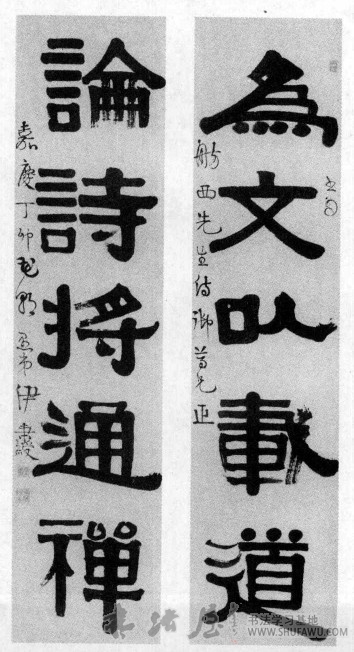 為文以載道
舫西先生侍御尊兄正
論詩將通禪
嘉慶丁卯花朝愚弟伊秉綬
书法学习基地
WWW.SHUFAWU.COM